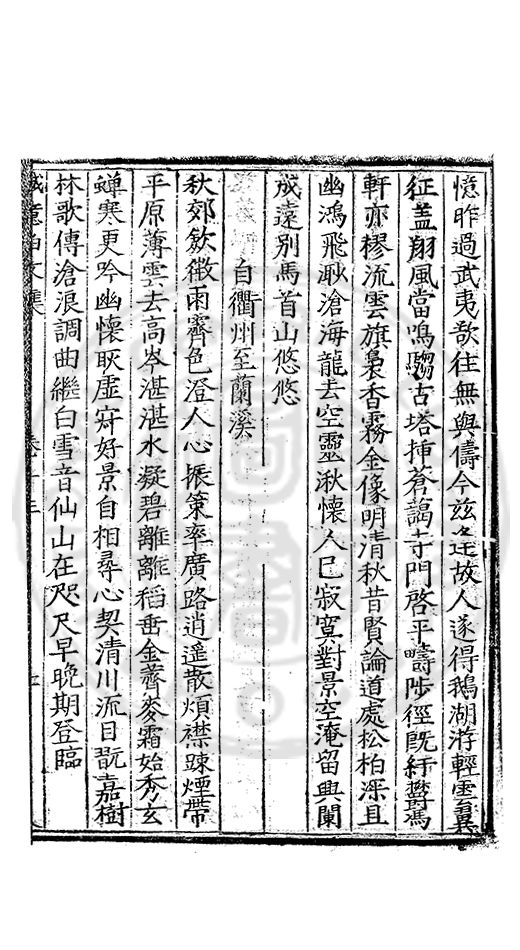 憶昨過武夷欲往無與儔今玆逢故人遂得鵝湖游輕雲翼
征盖翔風當鳴騶古塔揷蒼藹寺門啓平疇陟徑旣紆欝馮
軒亦穋流雲旗裊香霧金像明清秋昔賢論道處松柏深且
幽鴻飛渺滄海龍去空靈湫懷人已寂寞對景空淹留興闌
成遠別馬首山悠悠
自衢州至蘭溪
秋郊飲微雨霽色澄人心振策率廣路逍遥散煩襟踈煙帶
平原薄雲去高岑湛湛水凝碧離離稻垂金薺麥霜始秀玄
蟬寒更吟幽懷耿虛寂好景自相尋心契清川流目翫嘉樹
林歌傳滄浪調曲繼白雪音仙山在咫尺早晩期登臨